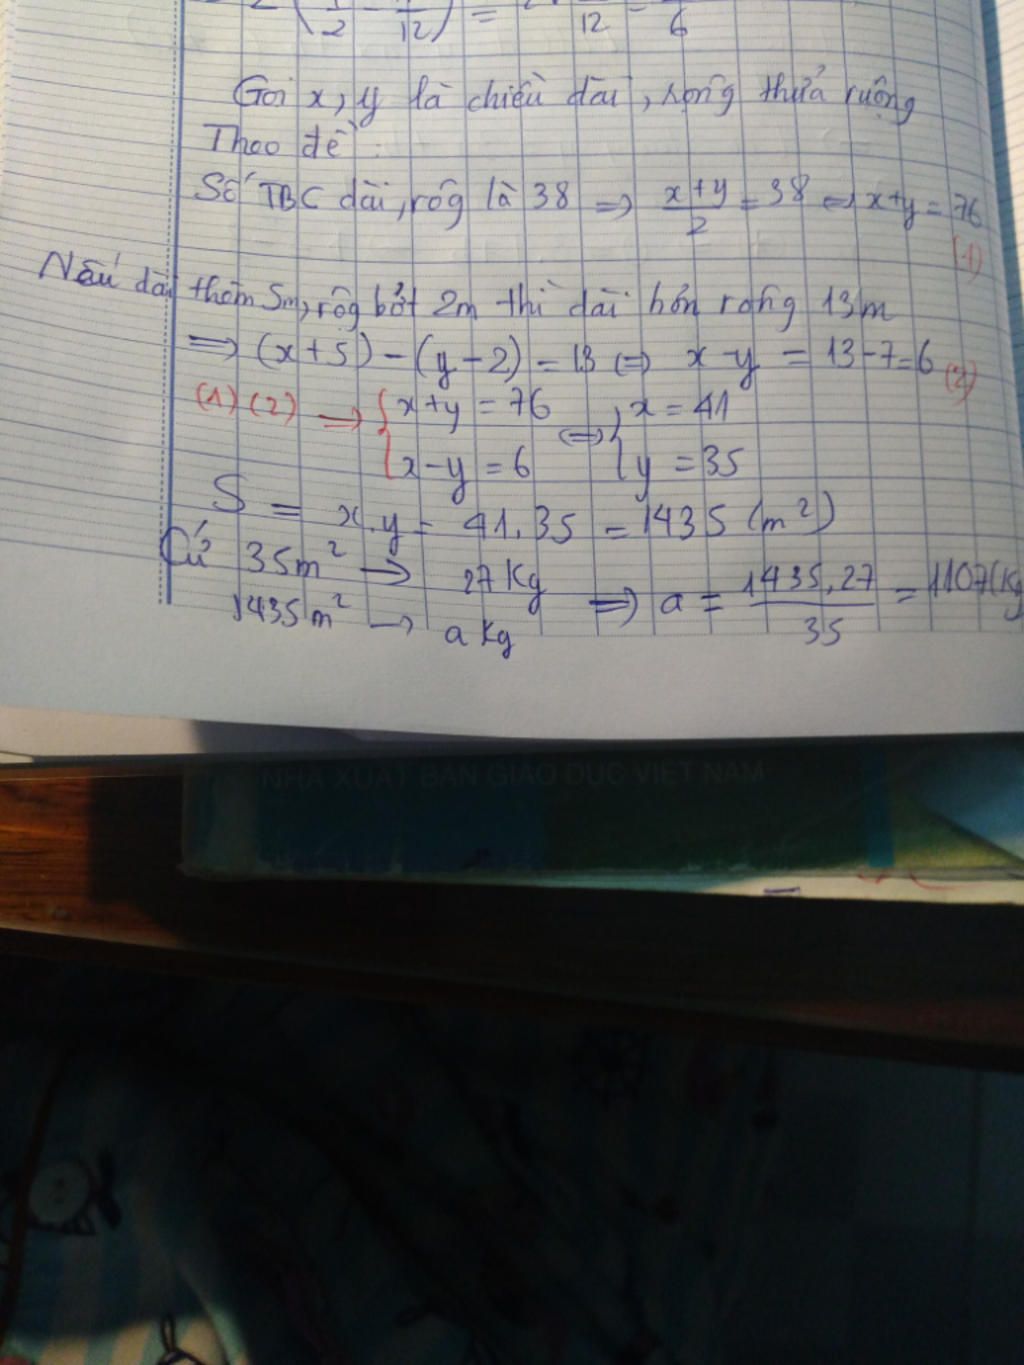 2 ( 1/2 - /12 ) = 2 . /12 = /6
Gọi x, y là chiều dài, rộng thửa ruộng
Theo đề :
Số TBC dài, rôg là 38 => (x+y)/2 = 38 <=> x+y = 76
(1)
Nếu dài thêm 5m, rôg bớt 2m thì dài hơn rộng 13m
=> (x+5) - (y-2) = 13 <=> x-y = 13-7=6 (2)
(1) (2) -> { x+y = 76 <=> { x = 41
{ x-y = 6 { y = 35
S = x.y = 41.35 = 1435 (m²)
Cứ 35m² -> 27 Kg => a = 1435.27/35 = 1107(Kg
1435m² -> a Kg
NHÀ XUẤT BẢN GIÁO DỤC VIỆT NAM